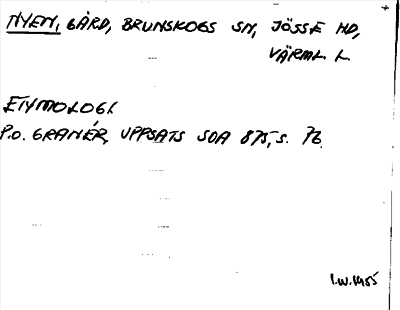 NYEN, GÅRD, BRUNSKOGS SN, JÖSSE HD,
VÄRML. L.
ETYMOLOGI.
P.O. GRANÉR, UPPSATS SOA 875, S. 76.
I.W. 1955